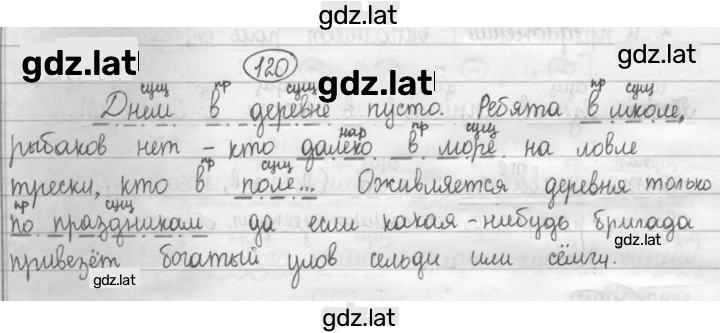 gdz.lat
120
gdz.lat
gdz.lat
сущ пр сущ пр сущ
Днем в деревне пусто. Ребята в школе,
нар пр сущ
рыбаков нет - кто далеко в море на ловле
пр сущ
трески, кто в поле... Оживляется деревня только
пр сущ
по праздникам да если какая-нибудь бригада
gdz.lat
привезёт богатый улов сельди или сёмгу.
gdz.lat
gdz.lat